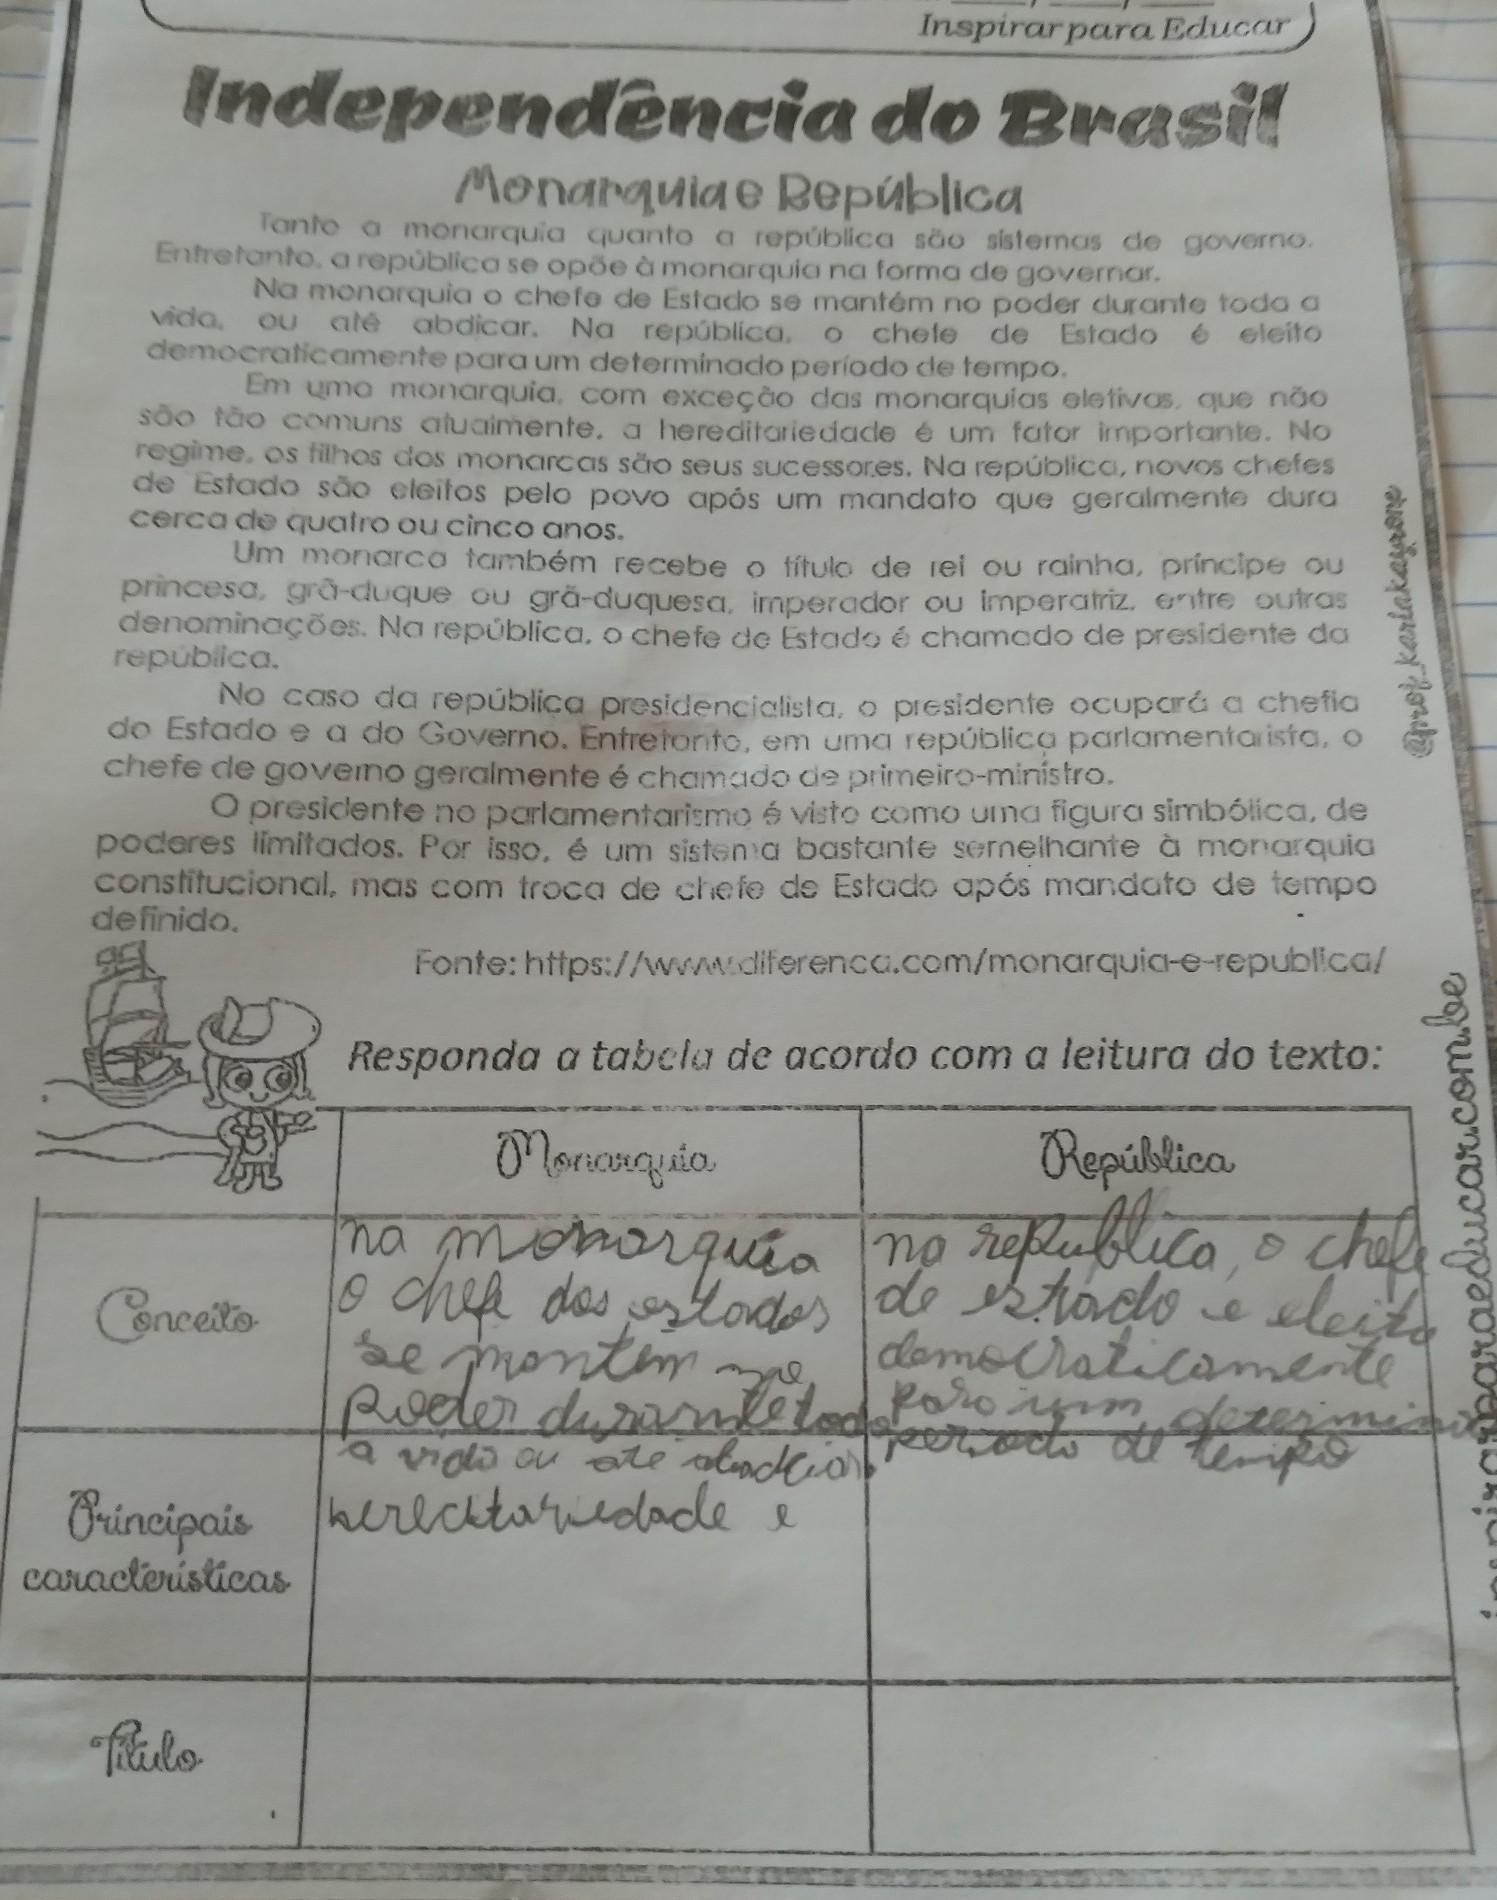 Inspirar para Educar
Independência do Brasil
Monarquia e República
Tanto a monarquia quanto a república são sistemas de governo.
Entretanto, a república se opõe à monarquia na forma de governar.
Na monarquia o chefe de Estado se mantém no poder durante toda a
vida, ou até abdicar. Na república, o chefe de Estado é eleito
democraticamente para um determinado período de tempo.
Em uma monarquia, com exceção das monarquias eletivas, que não
são tão comuns atualmente, a hereditariedade é um fator importante. No
regime, os filhos dos monarcas são seus sucessores. Na república, novos chefes
de Estado são eleitos pelo povo após um mandato que geralmente dura
cerca de quatro ou cinco anos.
Um monarca também recebe o título de rei ou rainha, príncipe ou
princesa, grã-duque ou grã-duquesa, imperador ou imperatriz, entre outras
denominações. Na república, o chefe de Estado é chamado de presidente da
república.
No caso da república presidencialista, o presidente ocupará a chefia
do Estado e a do Governo. Entretanto, em uma república parlamentarista, o
chefe de governo geralmente é chamado de primeiro-ministro.
O presidente no parlamentarismo é visto como uma figura simbólica, de
poderes limitados. Por isso, é um sistema bastante semelhante à monarquia
constitucional, mas com troca de chefe de Estado após mandato de tempo
definido.
Fonte: https://www.diferenca.com/monarquia-e-republica/
@prof_karlakayrone
Responda a tabela de acordo com a leitura do texto:
Monarquia
República
Conceito
na monarquia
o chefe dos estados
se mantem no
poder durante toda
a vida ou ate abdicar.
na republica, o chefe
de estado e eleito
democraticamente
para um
periodo de tempo
Principais
características
hereditariedade e
Título
inspirarparaeducar.com.be